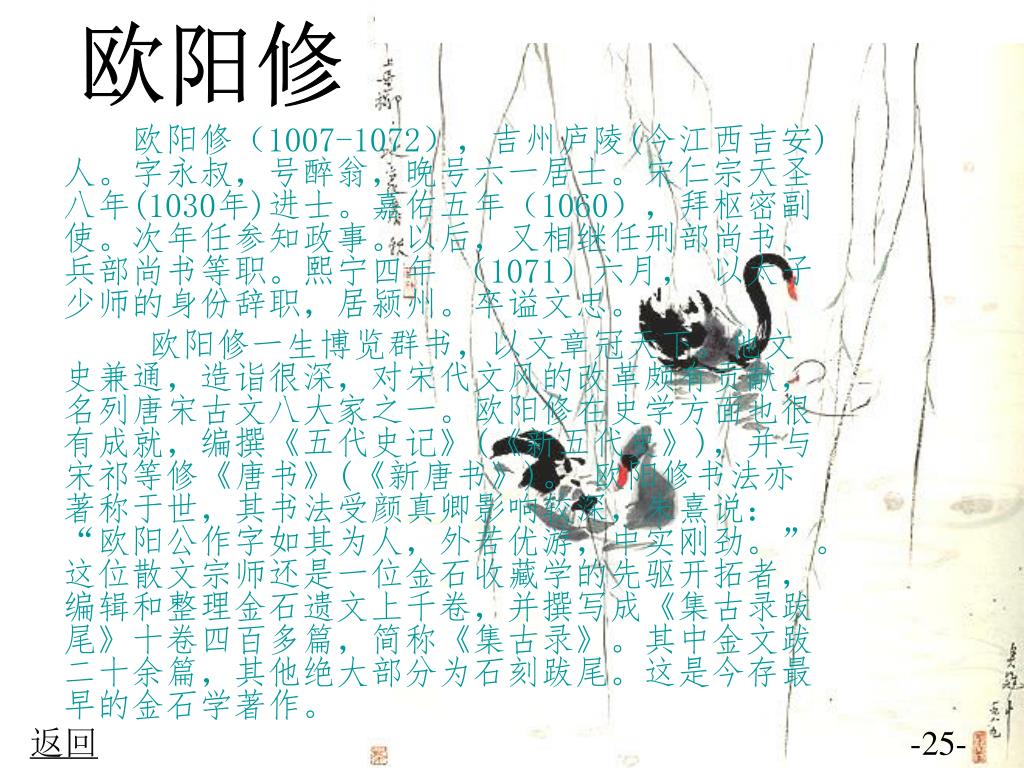 欧阳修
欧阳修（1007-1072），吉州庐陵(今江西吉安)
人。字永叔，号醉翁，晚号六一居士。宋仁宗天圣
八年(1030年)进士。嘉佑五年（1060），拜枢密副
使。次年任参知政事。以后，又相继任刑部尚书、
兵部尚书等职。熙宁四年 （1071）六月， 以太子
少师的身份辞职，居颍州。卒谥文忠。
欧阳修一生博览群书，以文章冠天下。他文
史兼通，造诣很深，对宋代文风的改革颇有贡献，
名列唐宋古文八大家之一。欧阳修在史学方面也很
有成就，编撰《五代史记》(《新五代史》)，并与
宋祁等修《唐书》(《新唐书》)。 欧阳修书法亦
著称于世，其书法受颜真卿影响较深，朱熹说：
“欧阳公作字如其为人，外若优游，中实刚劲。”。
这位散文宗师还是一位金石收藏学的先驱开拓者，
编辑和整理金石遗文上千卷，并撰写成《集古录跋
尾》十卷四百多篇，简称《集古录》。其中金文跋
二十余篇，其他绝大部分为石刻跋尾。这是今存最
早的金石学著作。
返回
-25-